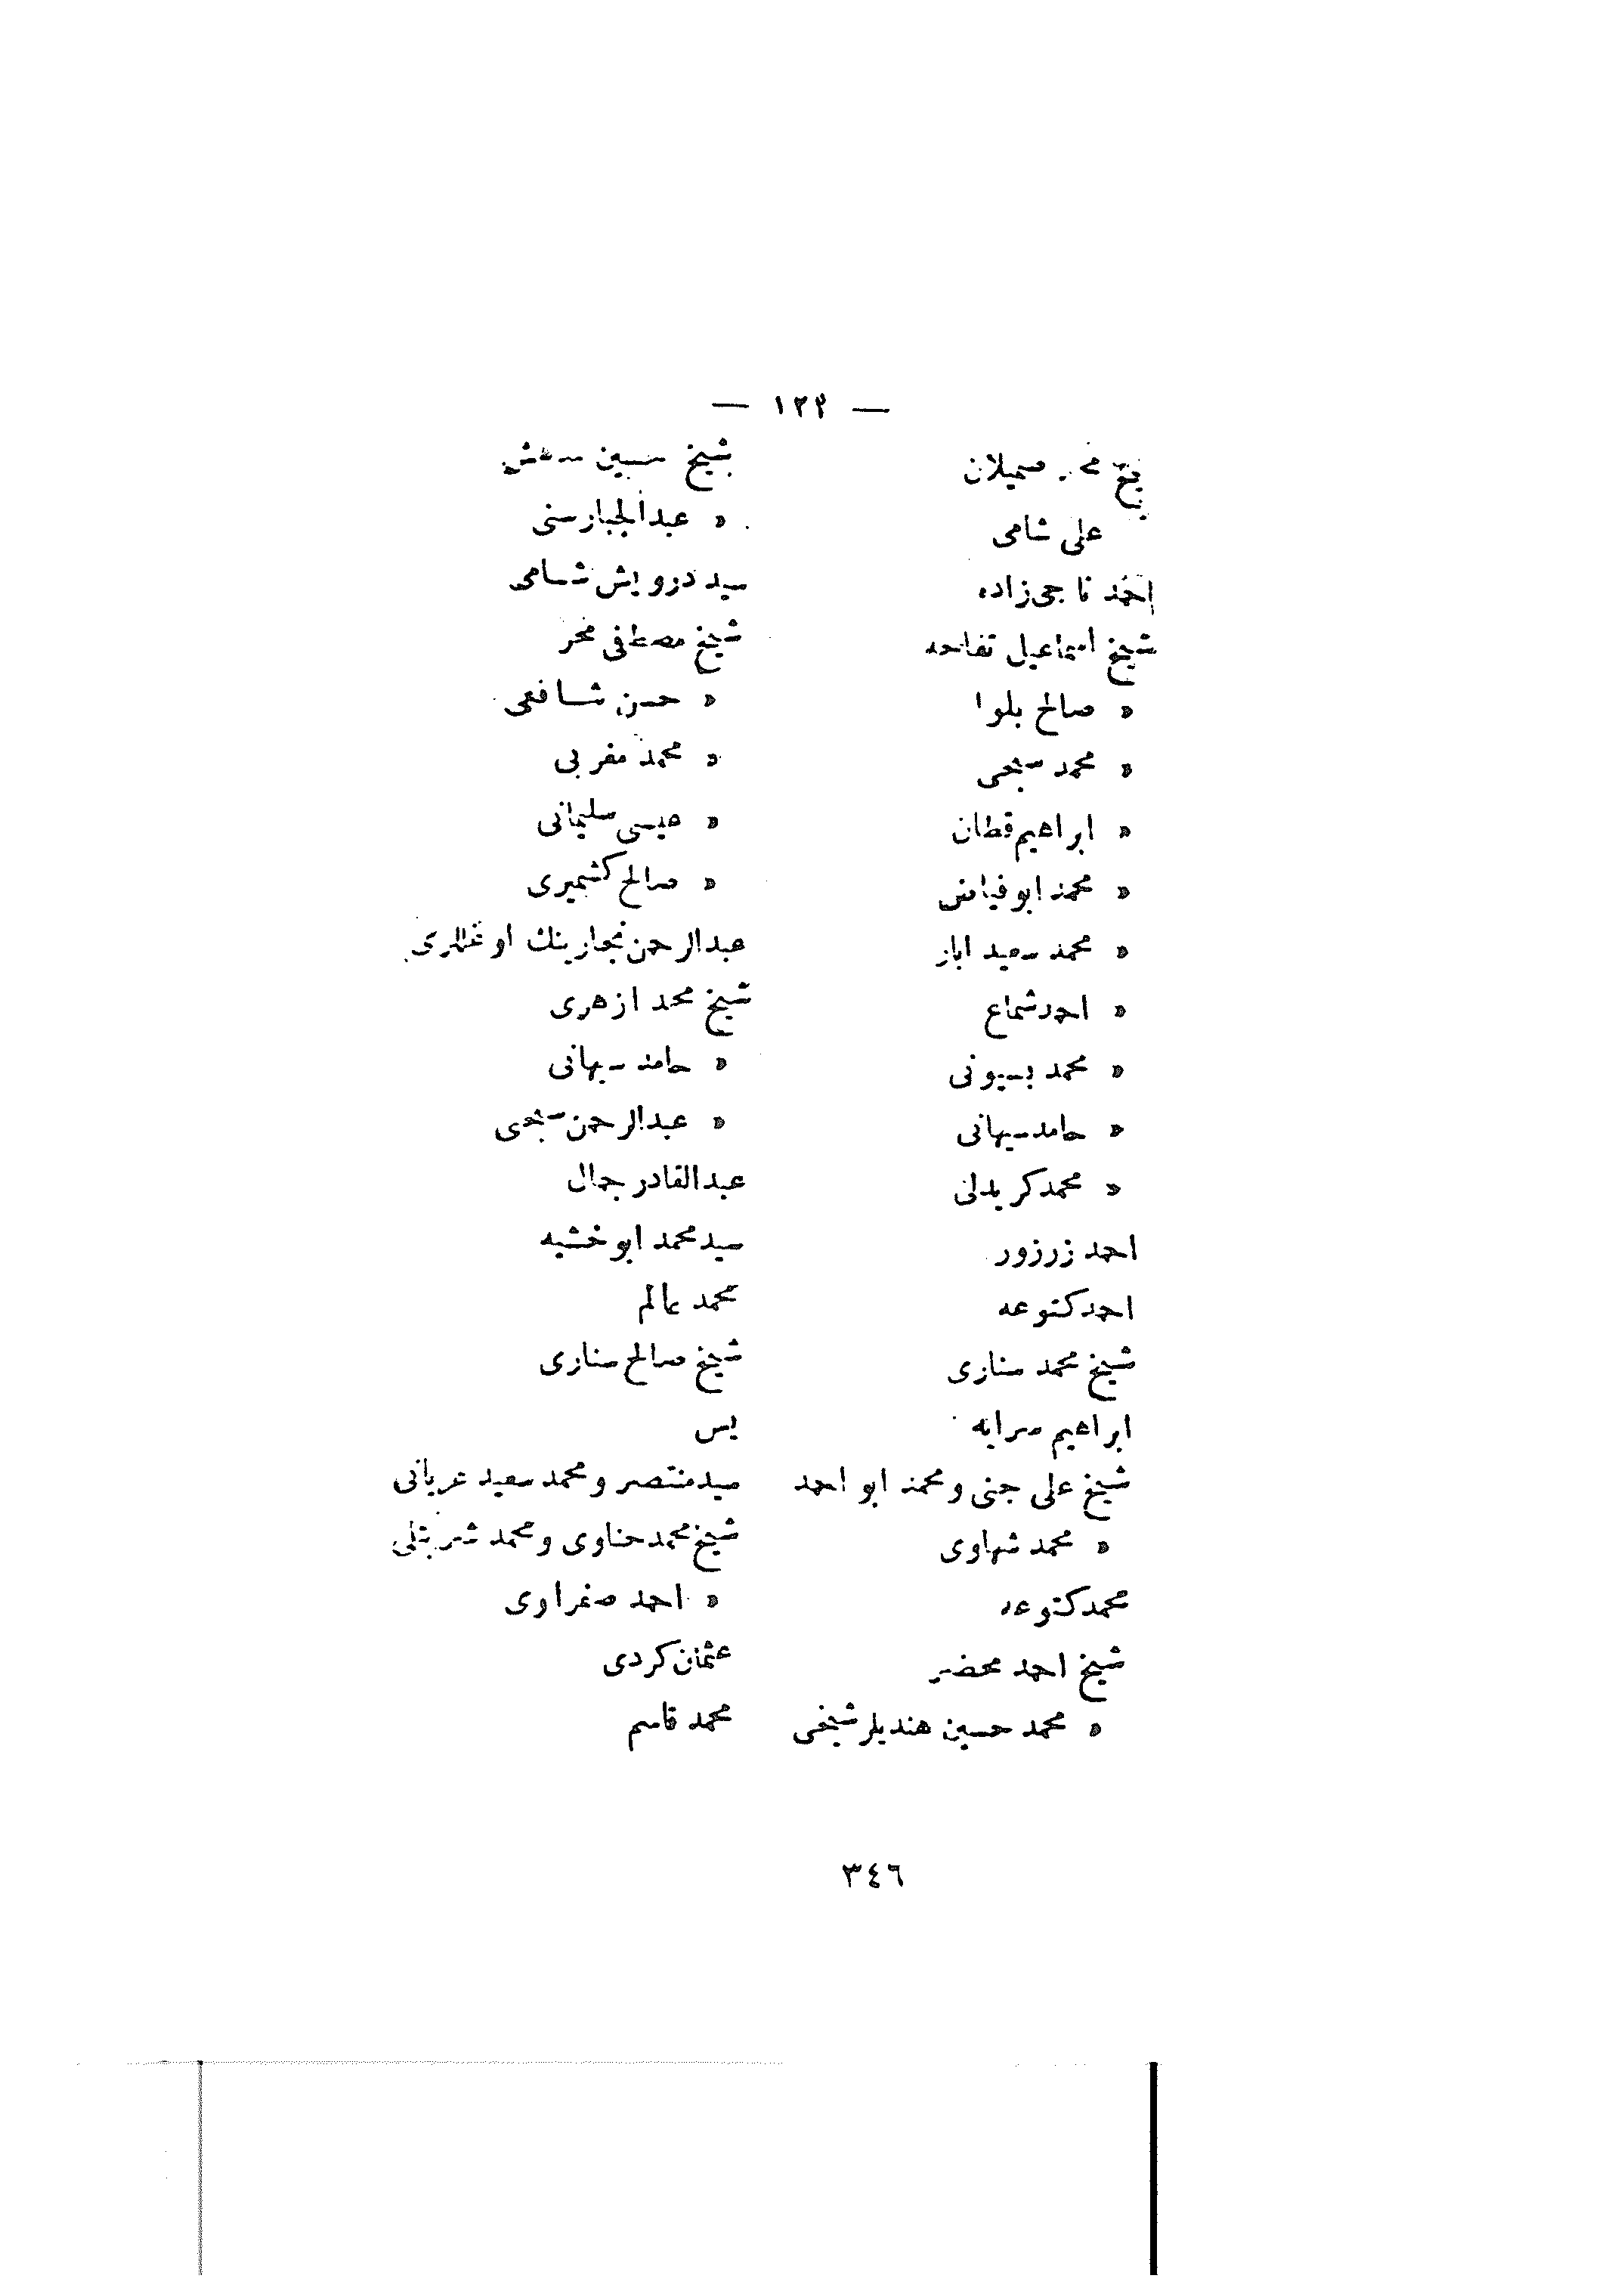 — ١٣٢ —
صميلان
على شامى
احمد ناجى زاده
شيخ اسماعيل تفاحه
» صالح بلوا
» محمد صبحى
» ابراهيم قطان
» محمد ابو فياض
» محمد سعيد اباز
» احمد شماع
» محمد بسيونى
» حامد سيهانى
» محمد كريدلى
احمد زرزور
احمد كتوعه
شيخ محمد سنارى
ابراهيم سرايه
شيخ على جنى و محمد ابو احمد
» محمد شهاوى
محمد كتوعه
شيخ احمد محضر
» محمد حسين هنديلر شيخى
شيخ حسين
» عبدالجبار سنى
سيد درويش شامى
شيخ مصطفى
» حسن شافعى
» محمد مغربى
» عيسى سليمانى
» صالح كشميرى
عبدالرحمن نجارينك اوغللرى
شيخ محمد ازهرى
» حامد سيهانى
» عبدالرحمن صبحى
عبدالقادر جمال
سيد محمد ابو خشبه
محمد عالم
شيخ صالح سنارى
يس
سيد منتصر و محمد سعيد عريانى
شيخ محمد حناوى و محمد شربتلى
» احمد صفراوى
عثمان كردى
محمد قاسم
٣٤٦